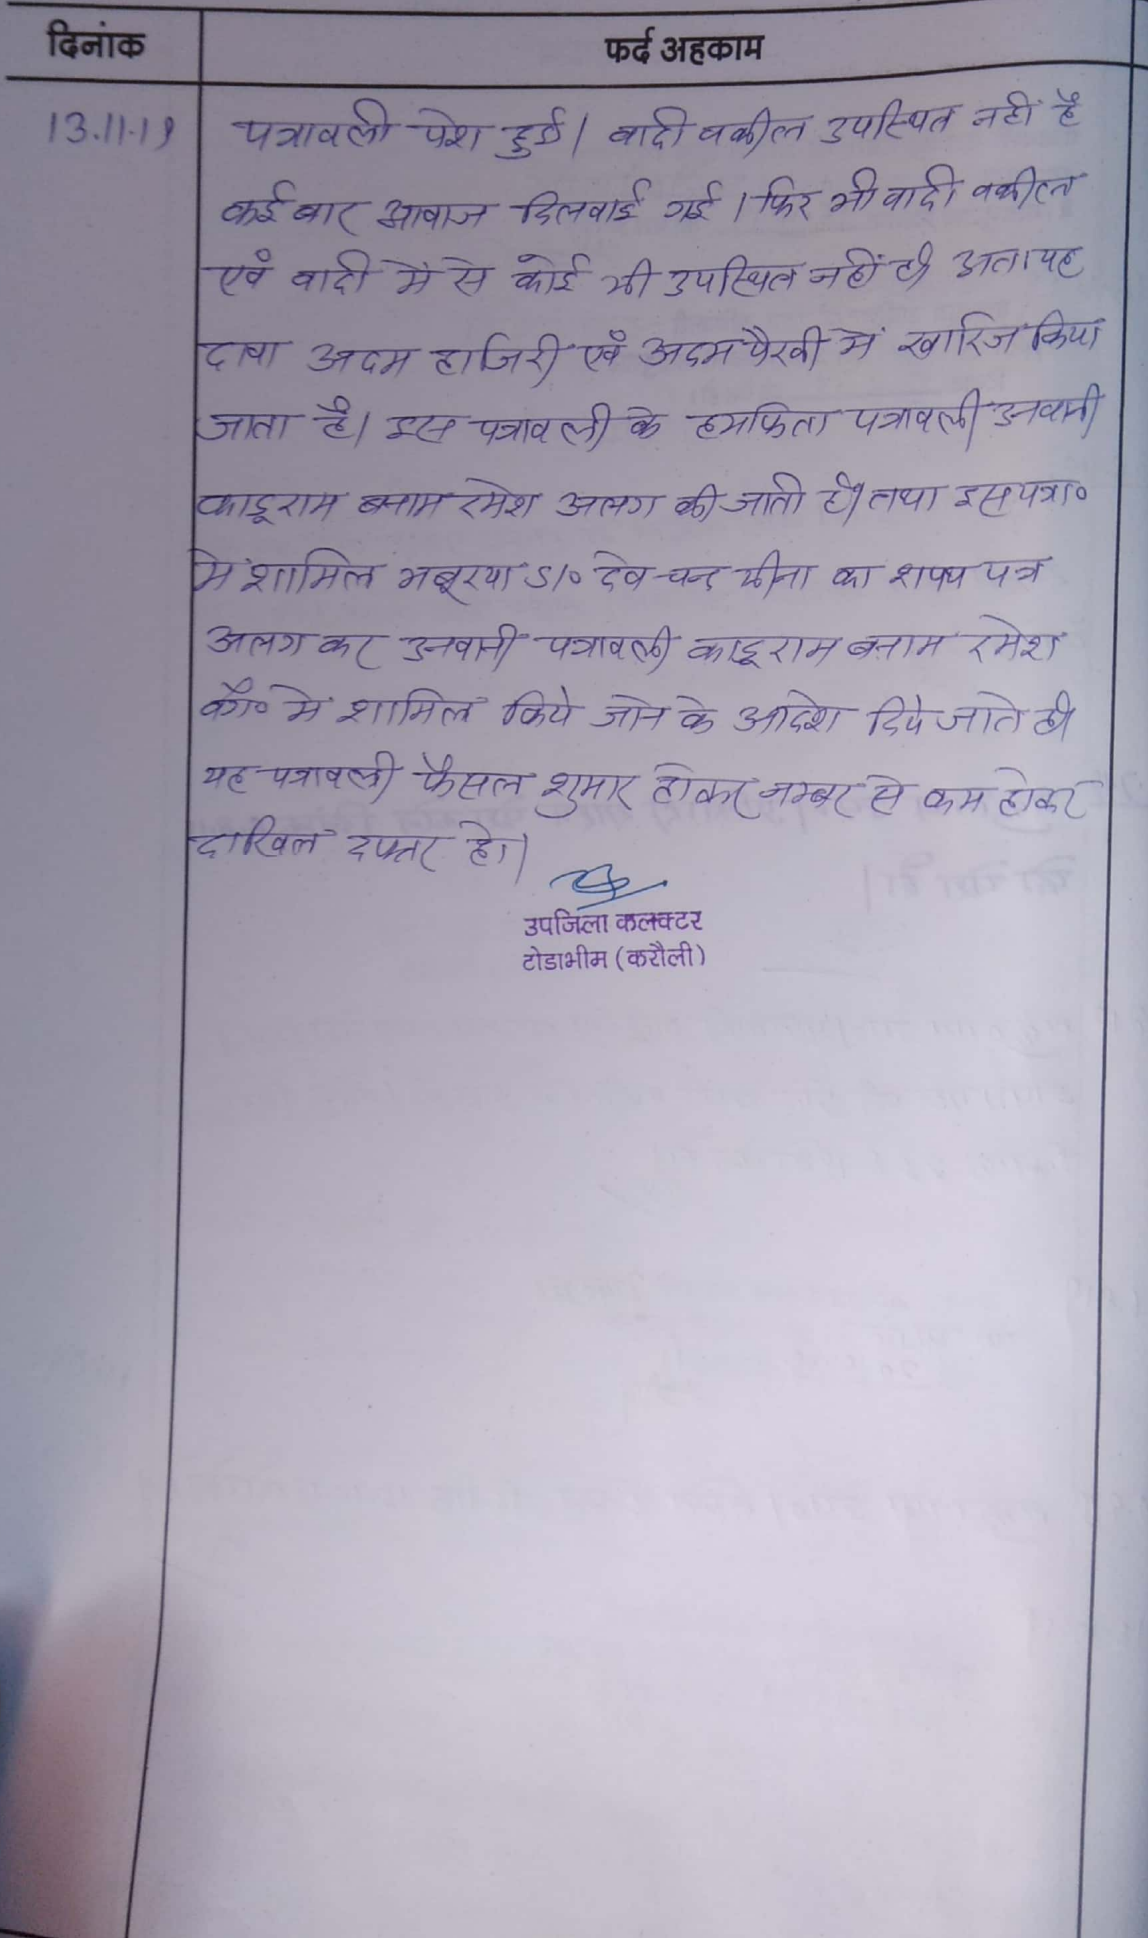 दिनांक
फर्द अहकाम
13.11.19
पत्रावली पेश हुई। वादी वकील उपस्थित नहीं है
कई बार आवाज दिलवाई गई। फिर भी वादी वकील
एवं वादी में से कोई भी उपस्थित नहीं है। अतः यह
दावा अदम हाजिरी एवं अदम पैरवी में खारिज किया
जाता है। इस पत्रावली के हमफिता पत्रावली उनवानी
काडूराम बनाम रमेश अलग की जाती है। तथा इस पत्रा०
में शामिल S/० देवचन्द मीना का शपथ पत्र
अलग कर उनवानी पत्रावली काडूराम बनाम रमेश
वगै० में शामिल किये जाने के आदेश दिये जाते है।
यह पत्रावली फैसल शुमार होकर नम्बर से कम होकर
दाखिल दफ्तर हो।
उपजिला कलक्टर
टोडाभीम (करौली)